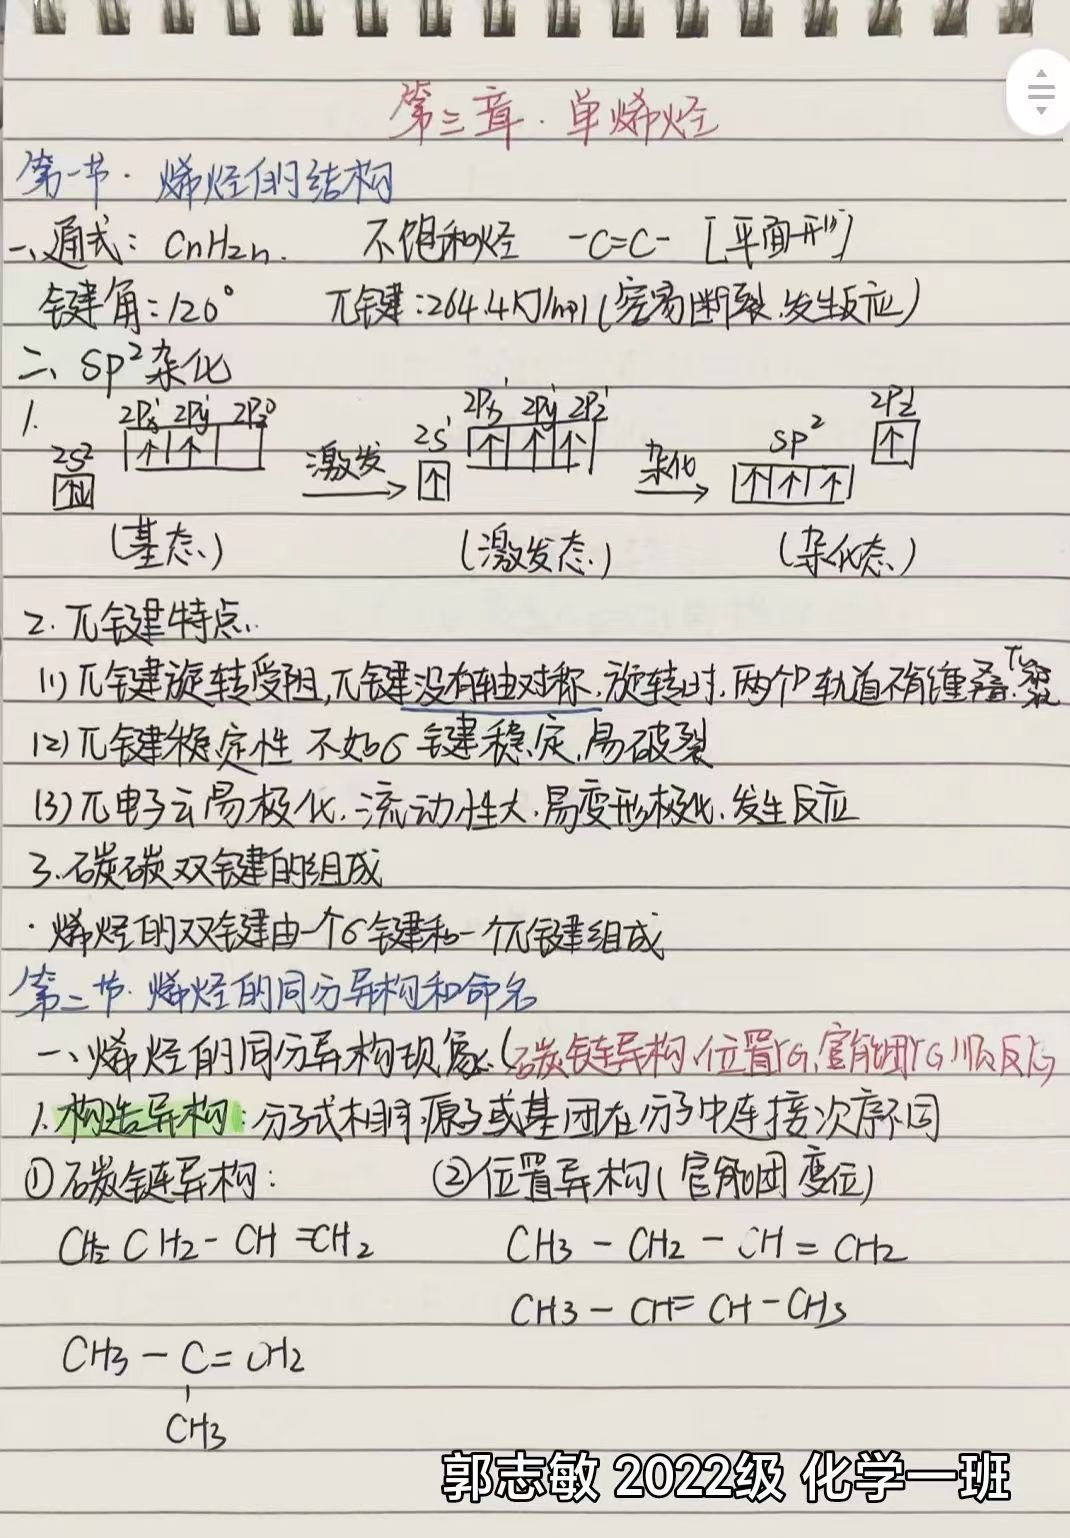 第三章·单烯烃
第一节·烯烃的结构
一、通式：CnH2n. 不饱和烃 -C=C- [平面形]
键角：120° π键：264.4KJ/mol(容易断裂.发生反应)
二、sp²杂化
1.
2S² 2Px¹ 2Py¹ 2Pz⁰ 激发 2S¹ 2Px¹ 2Py¹ 2Pz¹ 杂化 sp² 2Pz¹
(基态) (激发态) (杂化态)
2.π键特点.
(1)π键旋转受阻,π键没有轴对称.旋转时.两个P轨道不有重叠.
(2)π键稳定性 不如σ键稳定.易破裂
(3)π电子云易极化.流动性大.易变形极化.发生反应
3.碳碳双键的组成
·烯烃的双键由一个σ键和一个π键组成
第二节·烯烃的同分异构和命名
一、烯烃的同分异构现象.(碳链异构.位置YG.官能团YG.顺反YG
1.构造异构：分子式相同 原子或基团在分子中连接次序不同
①碳链异构： ②位置异构(官能团变位)
CH2-CH2-CH=CH2 CH3-CH2-CH=CH2
CH3-CH=CH-CH3
CH3-C=CH2
CH3
郭志敏 2022级 化学一班